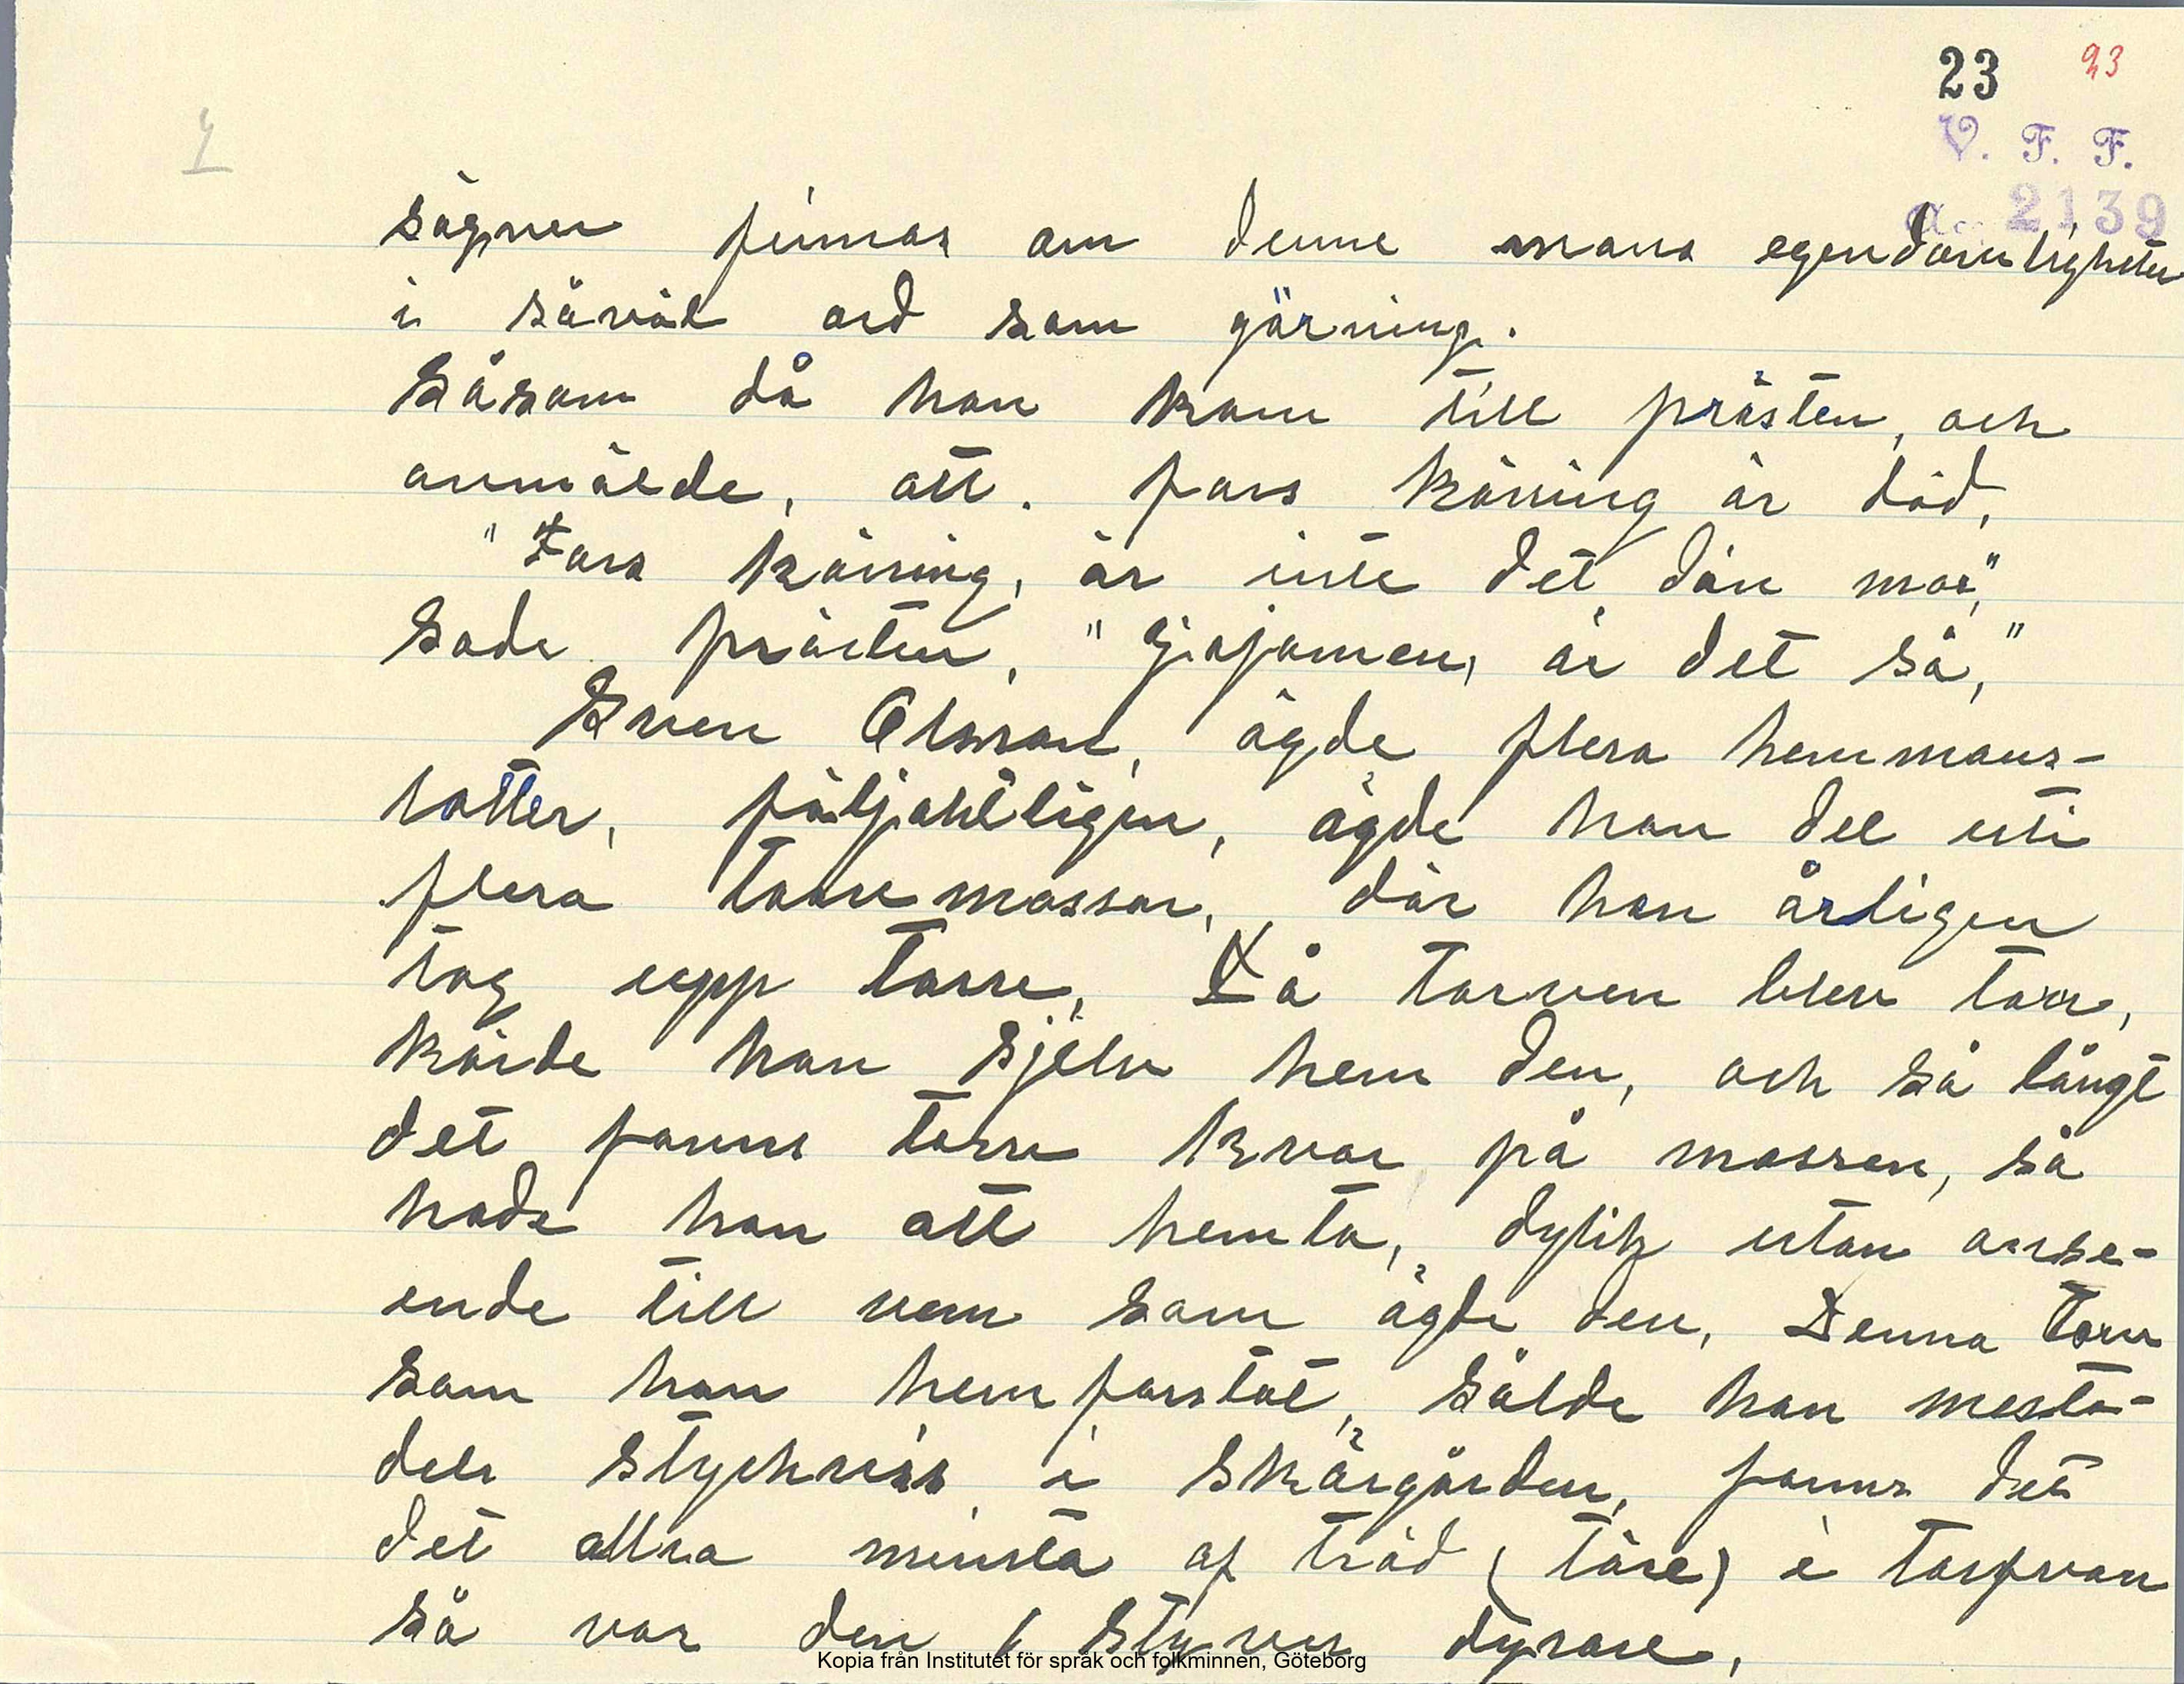 23 23
V. F. F.
Acc 2139
sägner finnas om denne mans egendomligheter
i såväl ord som gärning.
Såsom då han kom till prästen, och
anmälde, att. fars käring är död,
"Fars käring, är inte det din mor,"
sade prästen, "Jajamen, är det så,"
Sven Olsson, ägde flera hemmans-
lotter, följaktligen, ägde han del uti
flera torvmossar, där han årligen
tog upp torv, Då torven blev torr,
körde han sjelv hem den, och så långt
det fanns torv kvar på mossen, så
hade han att hemta, dylik utan anse-
ende till vem som ägde den, Denna torv
som han hemforslat, sålde han mesta-
dels styckvis i skärgården, fanns det
det allra minsta af träd (töre) i torfvan
så var den 1 styver dyrare,
Kopia från Institutet för språk och folkminnen, Göteborg